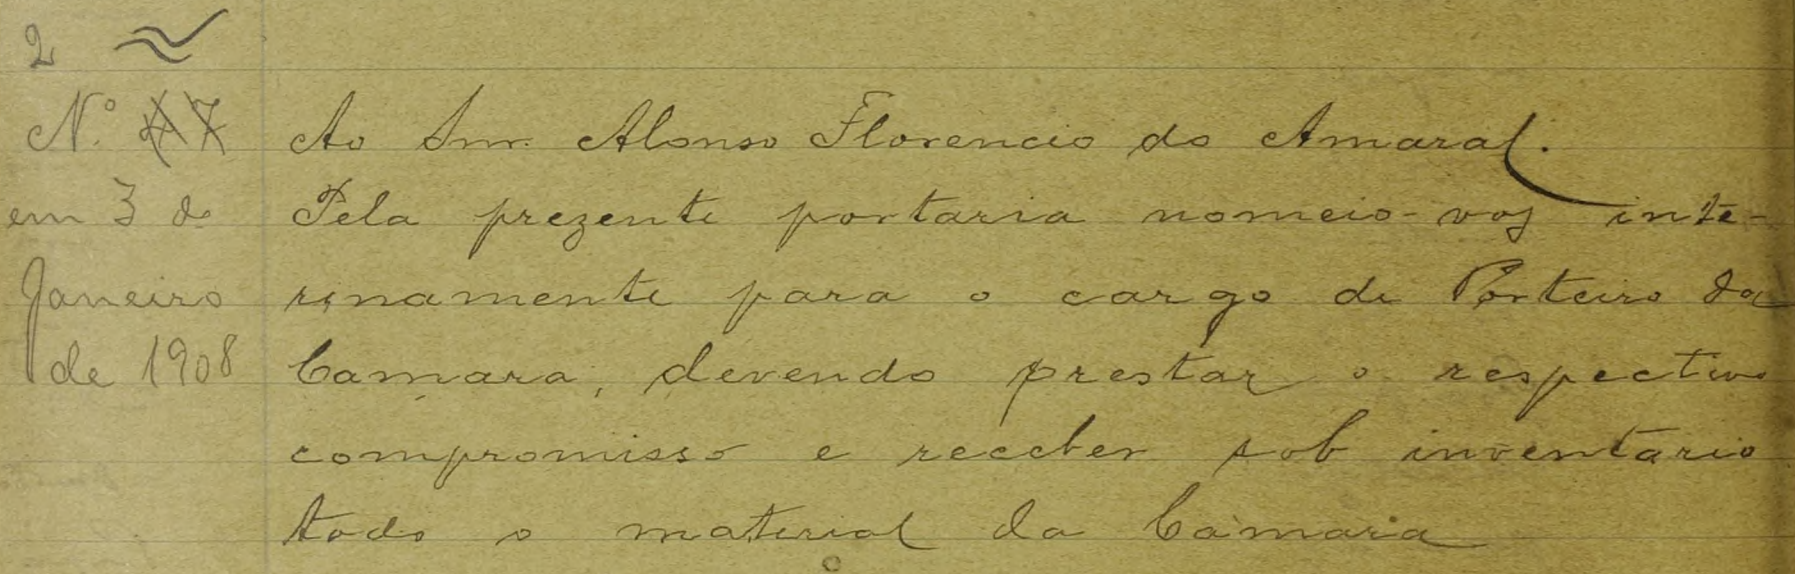 2
Nº 17 Ao Snr. Alonso Florencio do Amaral.
em 3 de Pela prezente portaria nomeio-vos inte-
Janeiro rinamente para o cargo de Porteiro da
de 1908 Camara, devendo prestar o respectivo
compromisso e receber sob inventario
todo o material da Camara